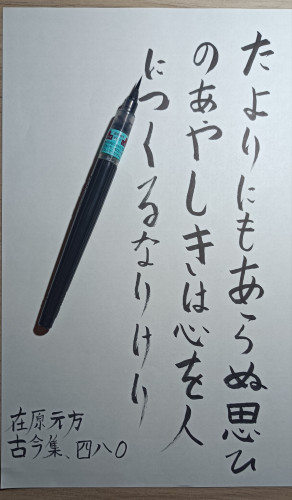 たよりにもあらぬ思ひ
のあやしきは心を人
につくるなりけり
在原元方
古今集、四八〇